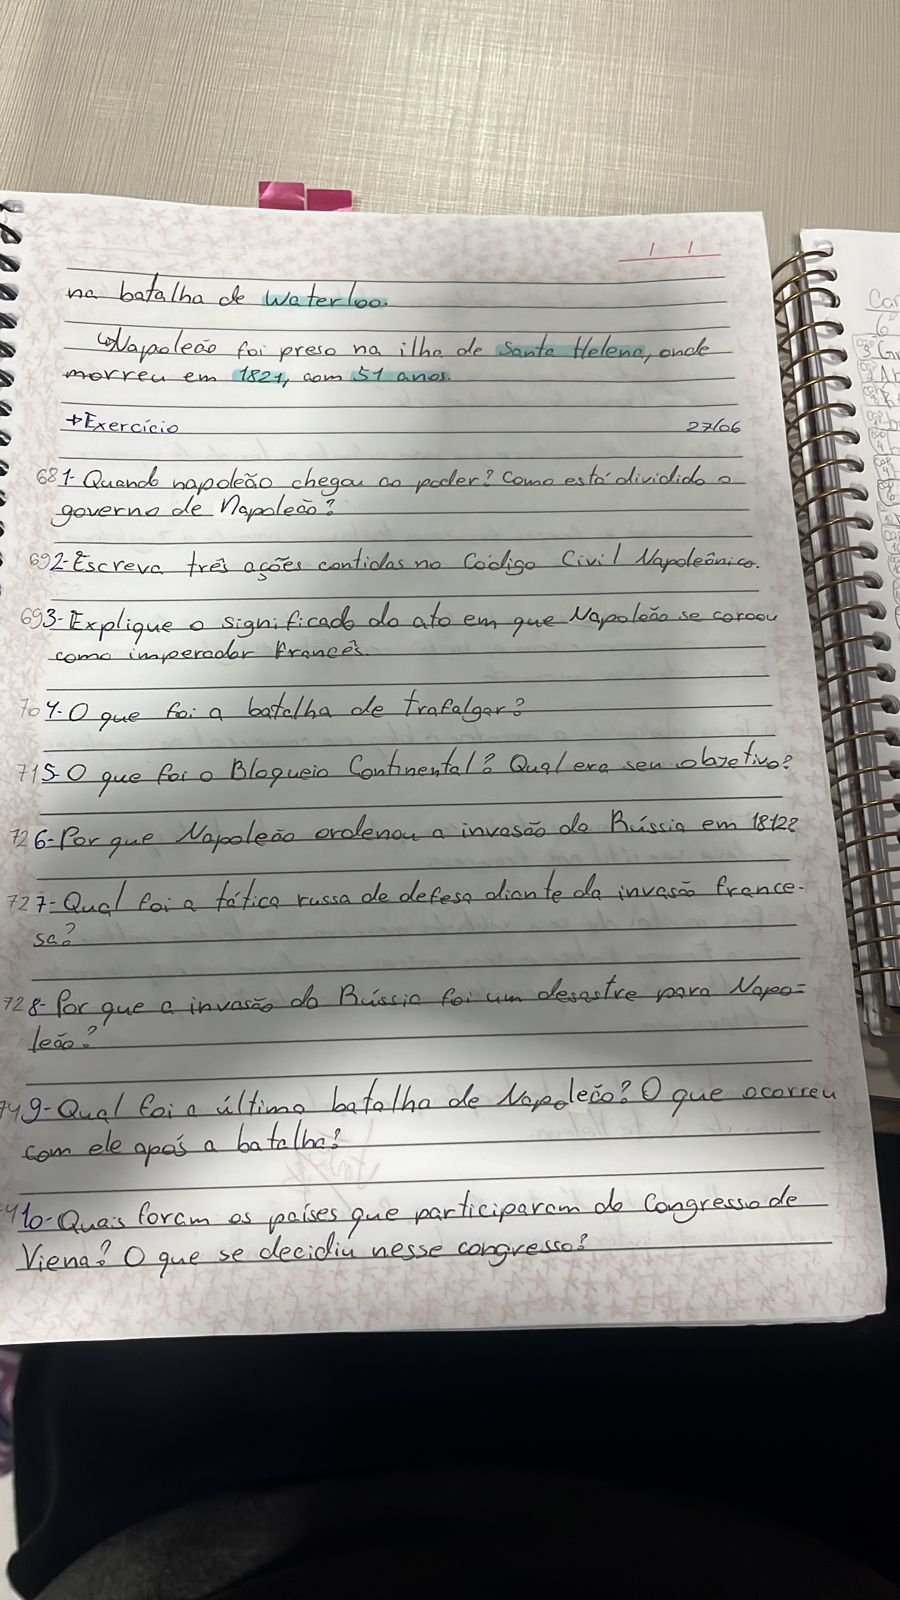 na batalha de Waterloo.
↳Napoleão foi preso na ilha de Santa Helena, onde
morreu em 1821, com 51 anos.
→Exercício 27/06
68 1- Quando napoleão chegou ao poder? Como está dividido o
governo de Napoleão?
69 2- Escreva três ações contidas no Código Civil Napoleônico.
69 3- Explique o significado do ato em que Napoleão se coroou
como imperador francês.
70 4- O que foi a batalha de trafalgar?
71 5- O que foi o Bloqueio Continental? Qual era seu objetivo?
72 6- Por que Napoleão ordenou a invasão da Rússia em 1812?
72 7- Qual foi a tática russa de defesa diante da invasão france-
sa?
72 8- Por que a invasão da Rússia foi um desastre para Napo-
leão?
74 9- Qual foi a última batalha de Napoleão? O que ocorreu
com ele após a batalha?
10- Quais foram os países que participaram do Congresso de
Viena? O que se decidiu nesse congresso?